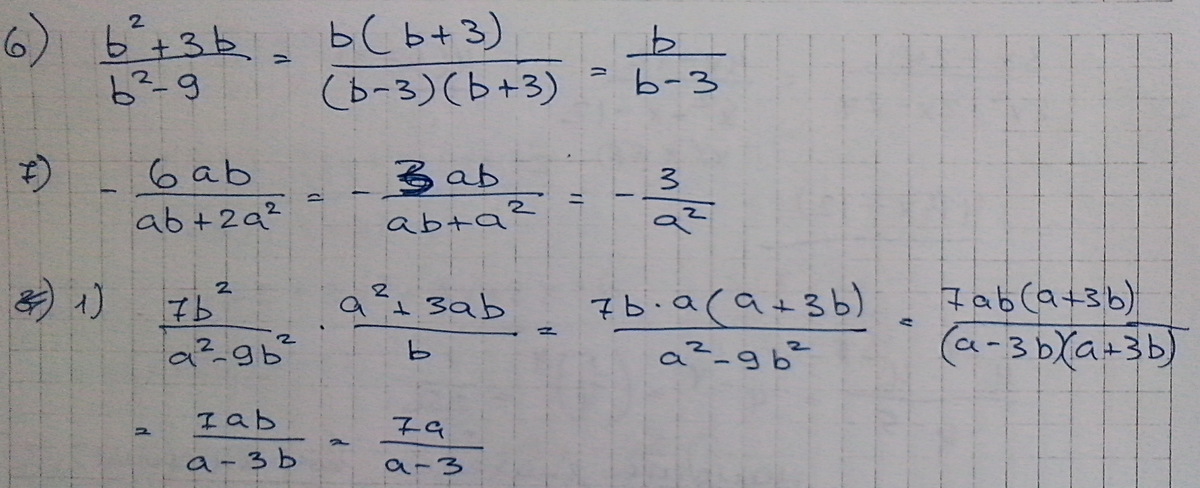 6) (b² + 3b)/(b² - 9) = b(b+3)/((b-3)(b+3)) = b/(b-3)
7) - 6ab/(ab+2a²) = - 3ab/(ab+a²) = - 3/a²
1) 7b²/(a²-9b²) · (a²+3ab)/b = 7b·a(a+3b)/(a²-9b²) = 7ab(a+3b)/((a-3b)(a+3b))
= 7ab/(a-3b) = 7a/(a-3)